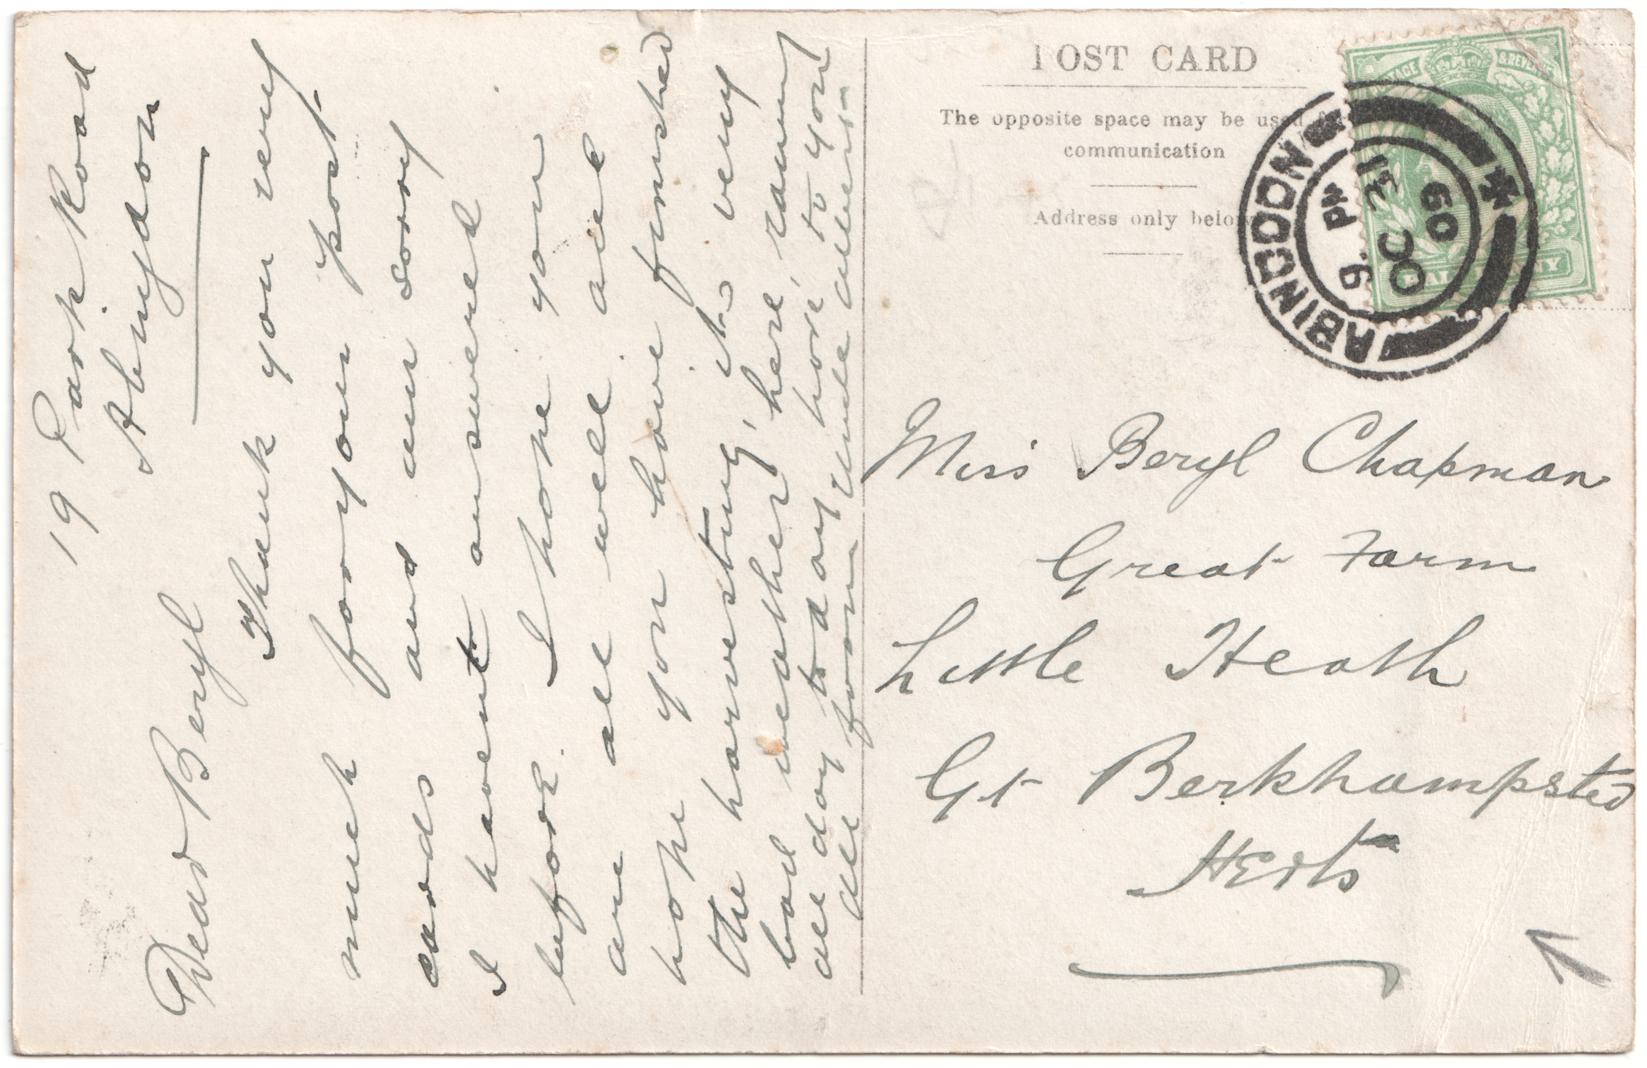 19 Park Road
Abingdon
Dear Beryl
Thank you very
much for your post
cards and am sorry
I havent answered
before. I hope you
are all well and
hope you have finished
the harvesting, its very
bad weather here, raining
all day to day, love to you
all from Auntie
POST CARD
The opposite space may be used for
communication
Address only below
ABINGDON
6 PM
OC 31
09
HALFPENNY
Miss Beryl Chapman
Great Farm
Little Heath
Gt Berkhampsted
Herts